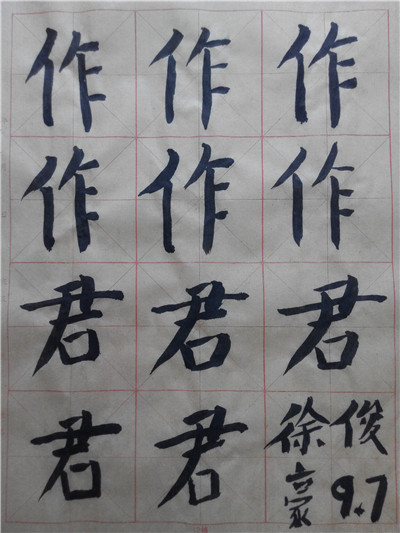 作作作
作作作
君君君
君君徐俊
豪9.7